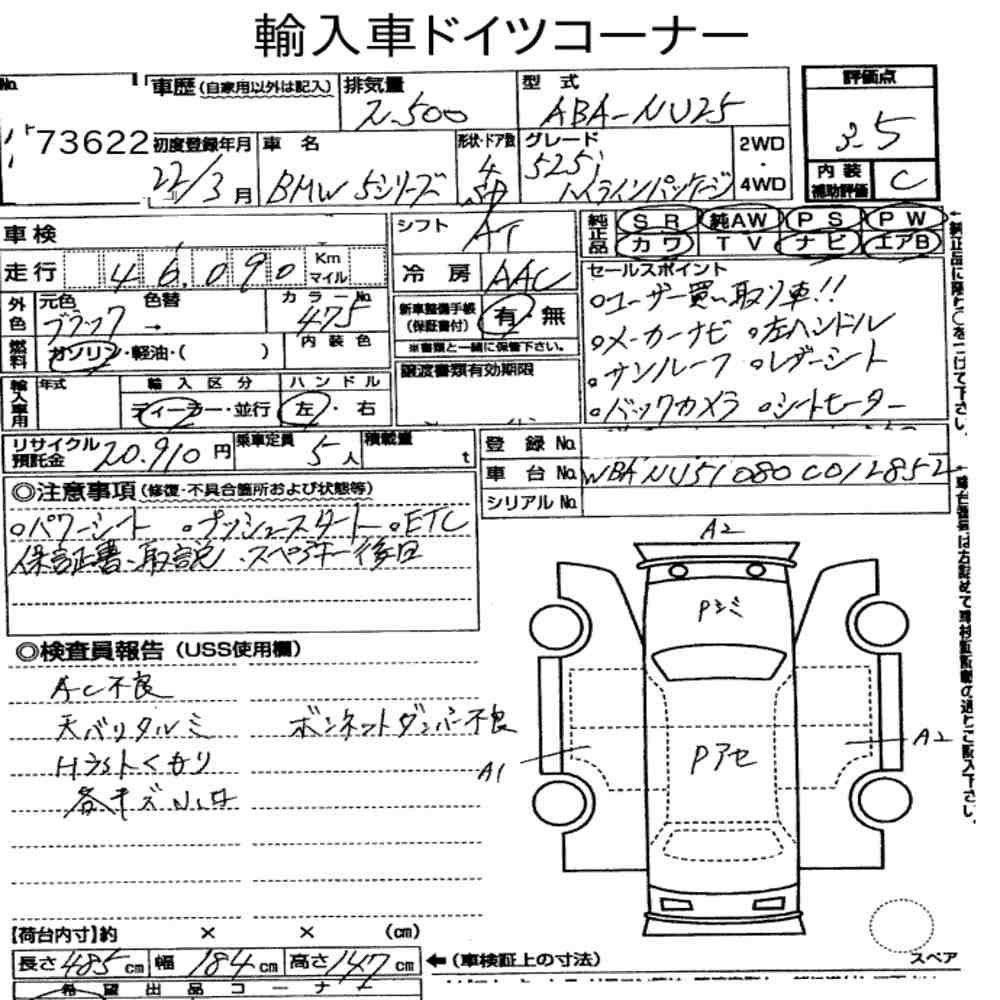 輸入車ドイツコーナー
No. 73622
車歴 (自家用以外は記入) 排気量 2,500 型式 ABA-NU25 評価点 3.5
初度登録年月 22/3月 車名 BMW 5シリーズ 形状・ドア数 4 グレード 525i ハイラインパッケージ 2WD・4WD 内装補助評価 C
車検 シフト AT 純正品 SR 純AW PS PW
カワ TV ナビ エアB
走行 46,090 Km マイル 冷房 AAC セールスポイント
外色 元色 ブラック 色替 → カラーNo. 475 新車整備手帳(保証書付) 有・無 ○ユーザー買い取り車!!
※書類と一緒に保管下さい。 ○メーカーナビ ○左ハンドル
燃料 ガソリン・軽油・( ) 内装色 譲渡書類有効期限 ○サンルーフ ○レザーシート
輸入車用 年式 輸入区分 ディーラー・並行 ハンドル 左・右 ○バックカメラ ○シートヒーター
リサイクル預託金 20,910円 乗車定員 5人 積載量 t 登録No.
車台No. WBANU51080C012852
シリアルNo.
◎注意事項(修復・不具合箇所および状態等)
○パワーシート ○プッシュスタート ○ETC
保証書、取説、スペアキー後日
◎検査員報告(USS使用欄)
AC不良
天バリタルミ ボンネットダンパー不良
Hライトくもり
各キズ
A2
Pシミ
Pアセ
A1
A2
【荷台内寸】約 × × (cm)
長さ 485cm 幅 184cm 高さ 147cm ←(車検証上の寸法) スペア
希望出品コーナー